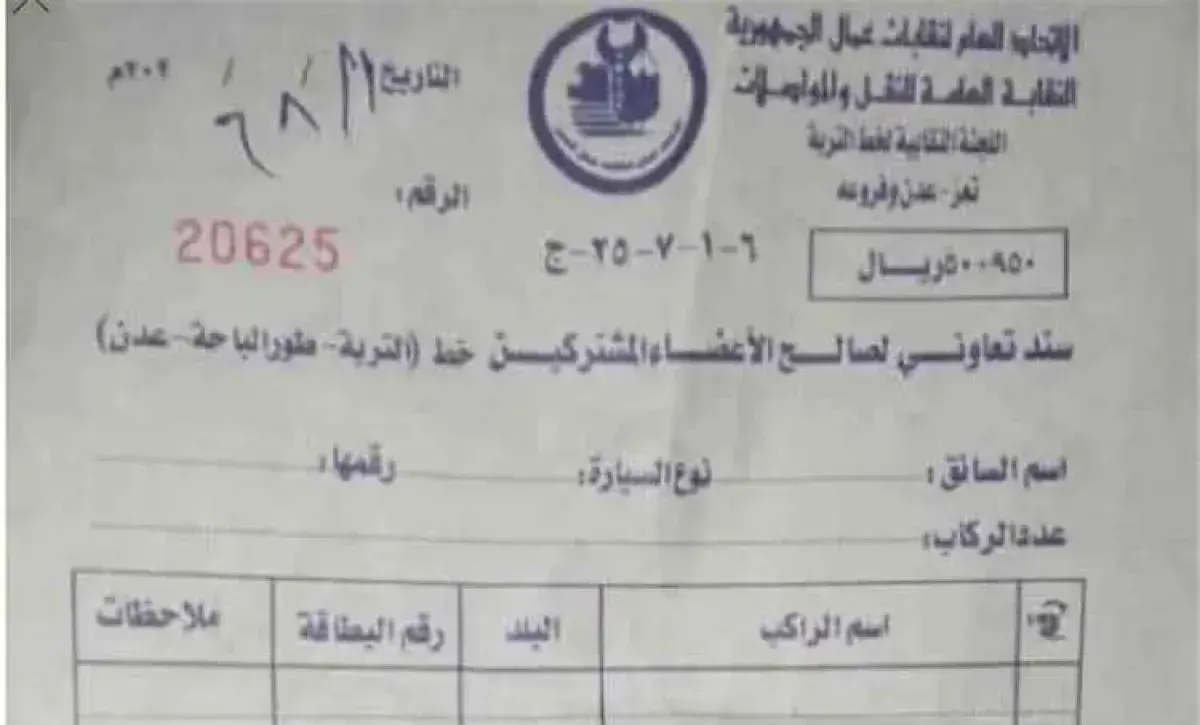 الإتحاد العام لنقابات عمال الجمهورية
النقابة العامة للنقل والمواصلات
اللجنة النقابية لخط التربة
تعز - عدن وفروعه
التاريخ / / ٢٠٢م
الرقم:
20625
٦-١-٧-٢٥-ج
٩٥٠+٥٠ريـال
سند تعاونـي لصالـح الأعضـاء المشتركيـن خط (التربة - طور الباحة - عدن)
اسم السائق: نوع السيارة: رقمها:
عدد الركاب:
اسم الراكب البلد رقم البطاقة ملاحظات